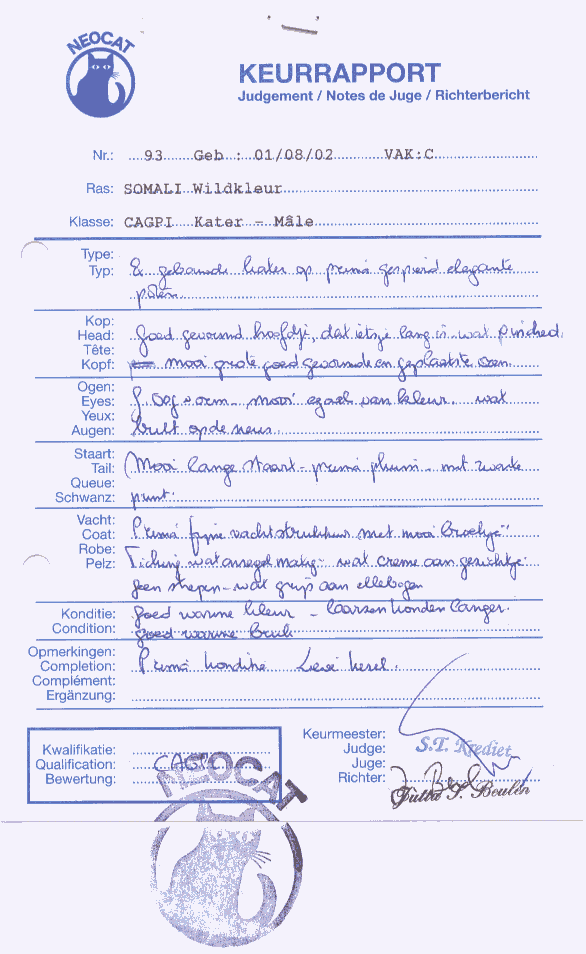 NEOCAT
KEURRAPPORT
Judgement / Notes de Juge / Richterbericht
Nr.: 93 Geb : 01/08/02 VAK:C
Ras: SOMALI Wildkleur
Klasse: CAGPI Kater - Mâle
Type:
Typ: gebouwde kater op prima gespierd elegante
poten
Kop:
Head: goed gevormd hoofdje, dat ietsje lang is wat pinched
Tête:
Kopf: mooi grote goed gevormde en geplaatste oren
Ogen:
Eyes: oogvorm mooi egaal van kleur wat
Yeux:
Augen: bult op de neus
Staart:
Tail: Mooi lange staart - prima pluim - met zwarte
Queue:
Schwanz: punt.
Vacht:
Coat: Prima fijne vachtstruktuur met mooi broekje
Robe:
Pelz: Ticking wat onregelmatig - wat creme aan gezichtje
geen strepen - wat grijs aan ellebogen
Konditie: goed warme kleur - laarsen konden langer.
Condition: goed warme
Opmerkingen:
Completion: Prima konditie Lieve kerel.
Complément:
Ergänzung:
Kwalifikatie:
Qualification: CAGPI
Bewertung:
Keurmeester:
Judge: S.T. Krediet
Juge:
Richter:
Jutta S. Beulen
NEOCAT